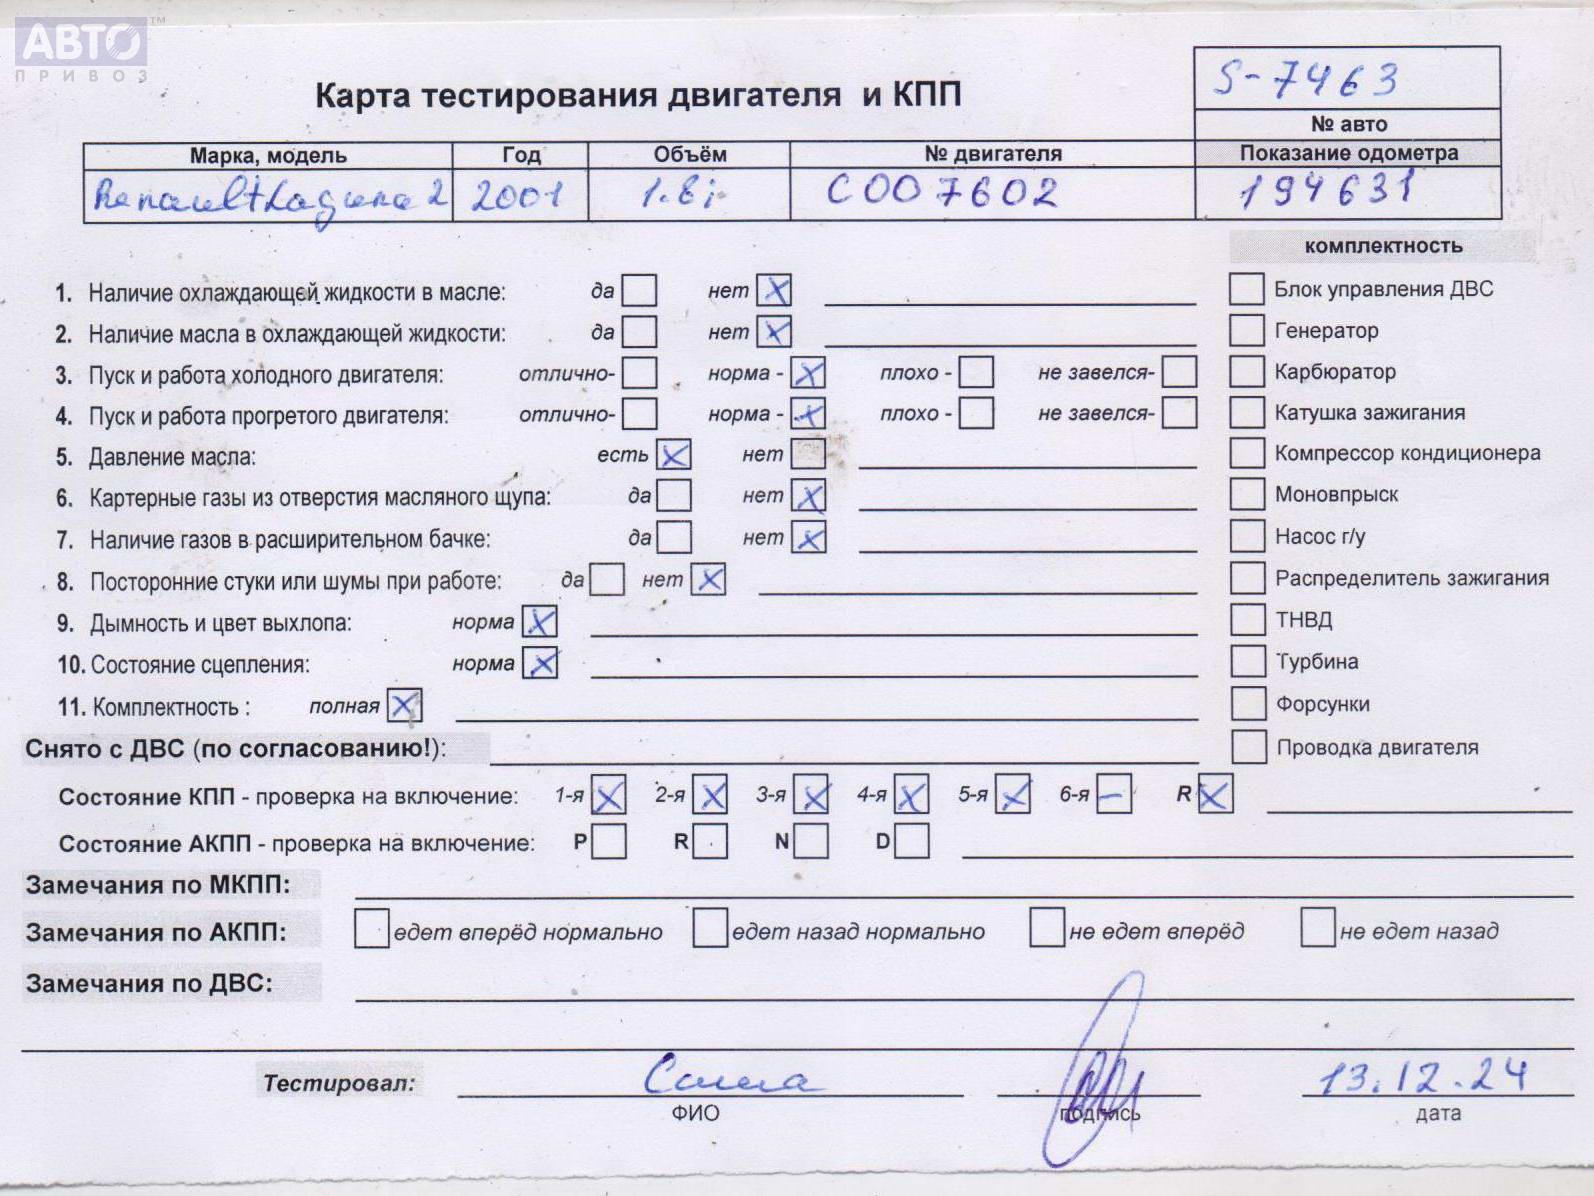 АВТО™
ПРИВОЗ
S-7463
Карта тестирования двигателя и КПП
№ авто
Марка, модель Год Объём № двигателя Показание одометра
Renault Laguna 2 2001 1.8i C007602 194631
комплектность
1. Наличие охлаждающей жидкости в масле: да нет X Блок управления ДВС
2. Наличие масла в охлаждающей жидкости: да нет X Генератор
3. Пуск и работа холодного двигателя: отлично- норма - X плохо - не завелся- Карбюратор
4. Пуск и работа прогретого двигателя: отлично- норма - X плохо - не завелся- Катушка зажигания
5. Давление масла: есть X нет Компрессор кондиционера
6. Картерные газы из отверстия масляного щупа: да нет X Моновпрыск
7. Наличие газов в расширительном бачке: да нет X Насос г/у
8. Посторонние стуки или шумы при работе: да нет X Распределитель зажигания
9. Дымность и цвет выхлопа: норма X ТНВД
10. Состояние сцепления: норма X Турбина
11. Комплектность : полная X Форсунки
Снято с ДВС (по согласованию!): Проводка двигателя
Состояние КПП - проверка на включение: 1-я X 2-я X 3-я X 4-я X 5-я X 6-я – R X
Состояние АКПП - проверка на включение: P R N D
Замечания по МКПП:
Замечания по АКПП: едет вперёд нормально едет назад нормально не едет вперёд не едет назад
Замечания по ДВС:
Тестировал: Саша 13.12.24
ФИО подпись дата